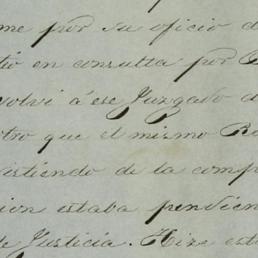 me por su oficio d
tió en consulta por
volví á ese Juzgado d
otro que el mismo
istiendo de la comp
cion estaba pendien
de Justicia. Hize est